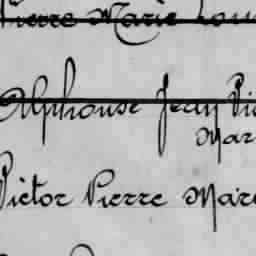 Pierre Marie Lou
Alphonse Jean Pie
Mar
Victor Pierre Mar